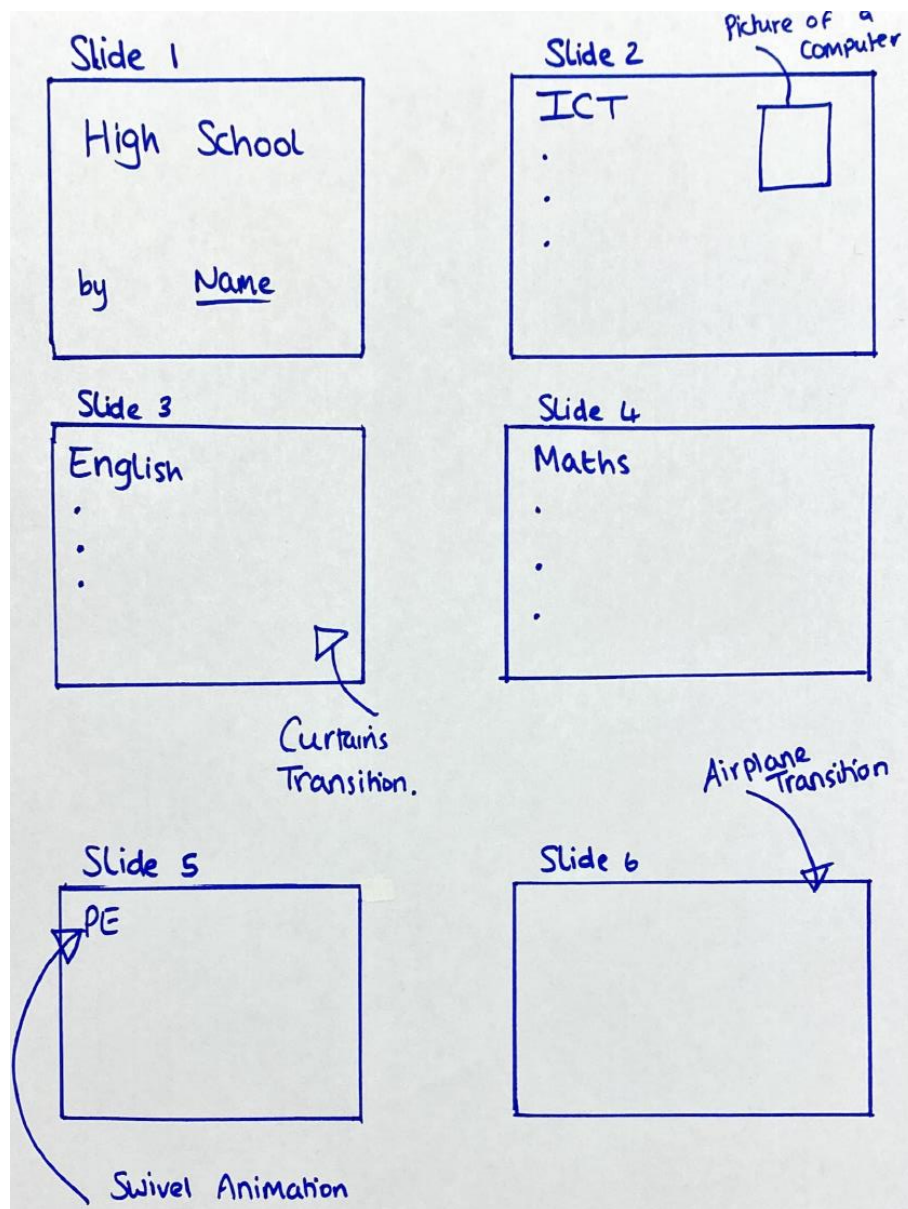 Slide 1
High School
by Name
Slide 2
Picture of a
Computer
ICT
Slide 3
English
Curtains
Transition.
Slide 4
Maths
Slide 5
PE
Swivel Animation
Slide 6
Airplane
Transition